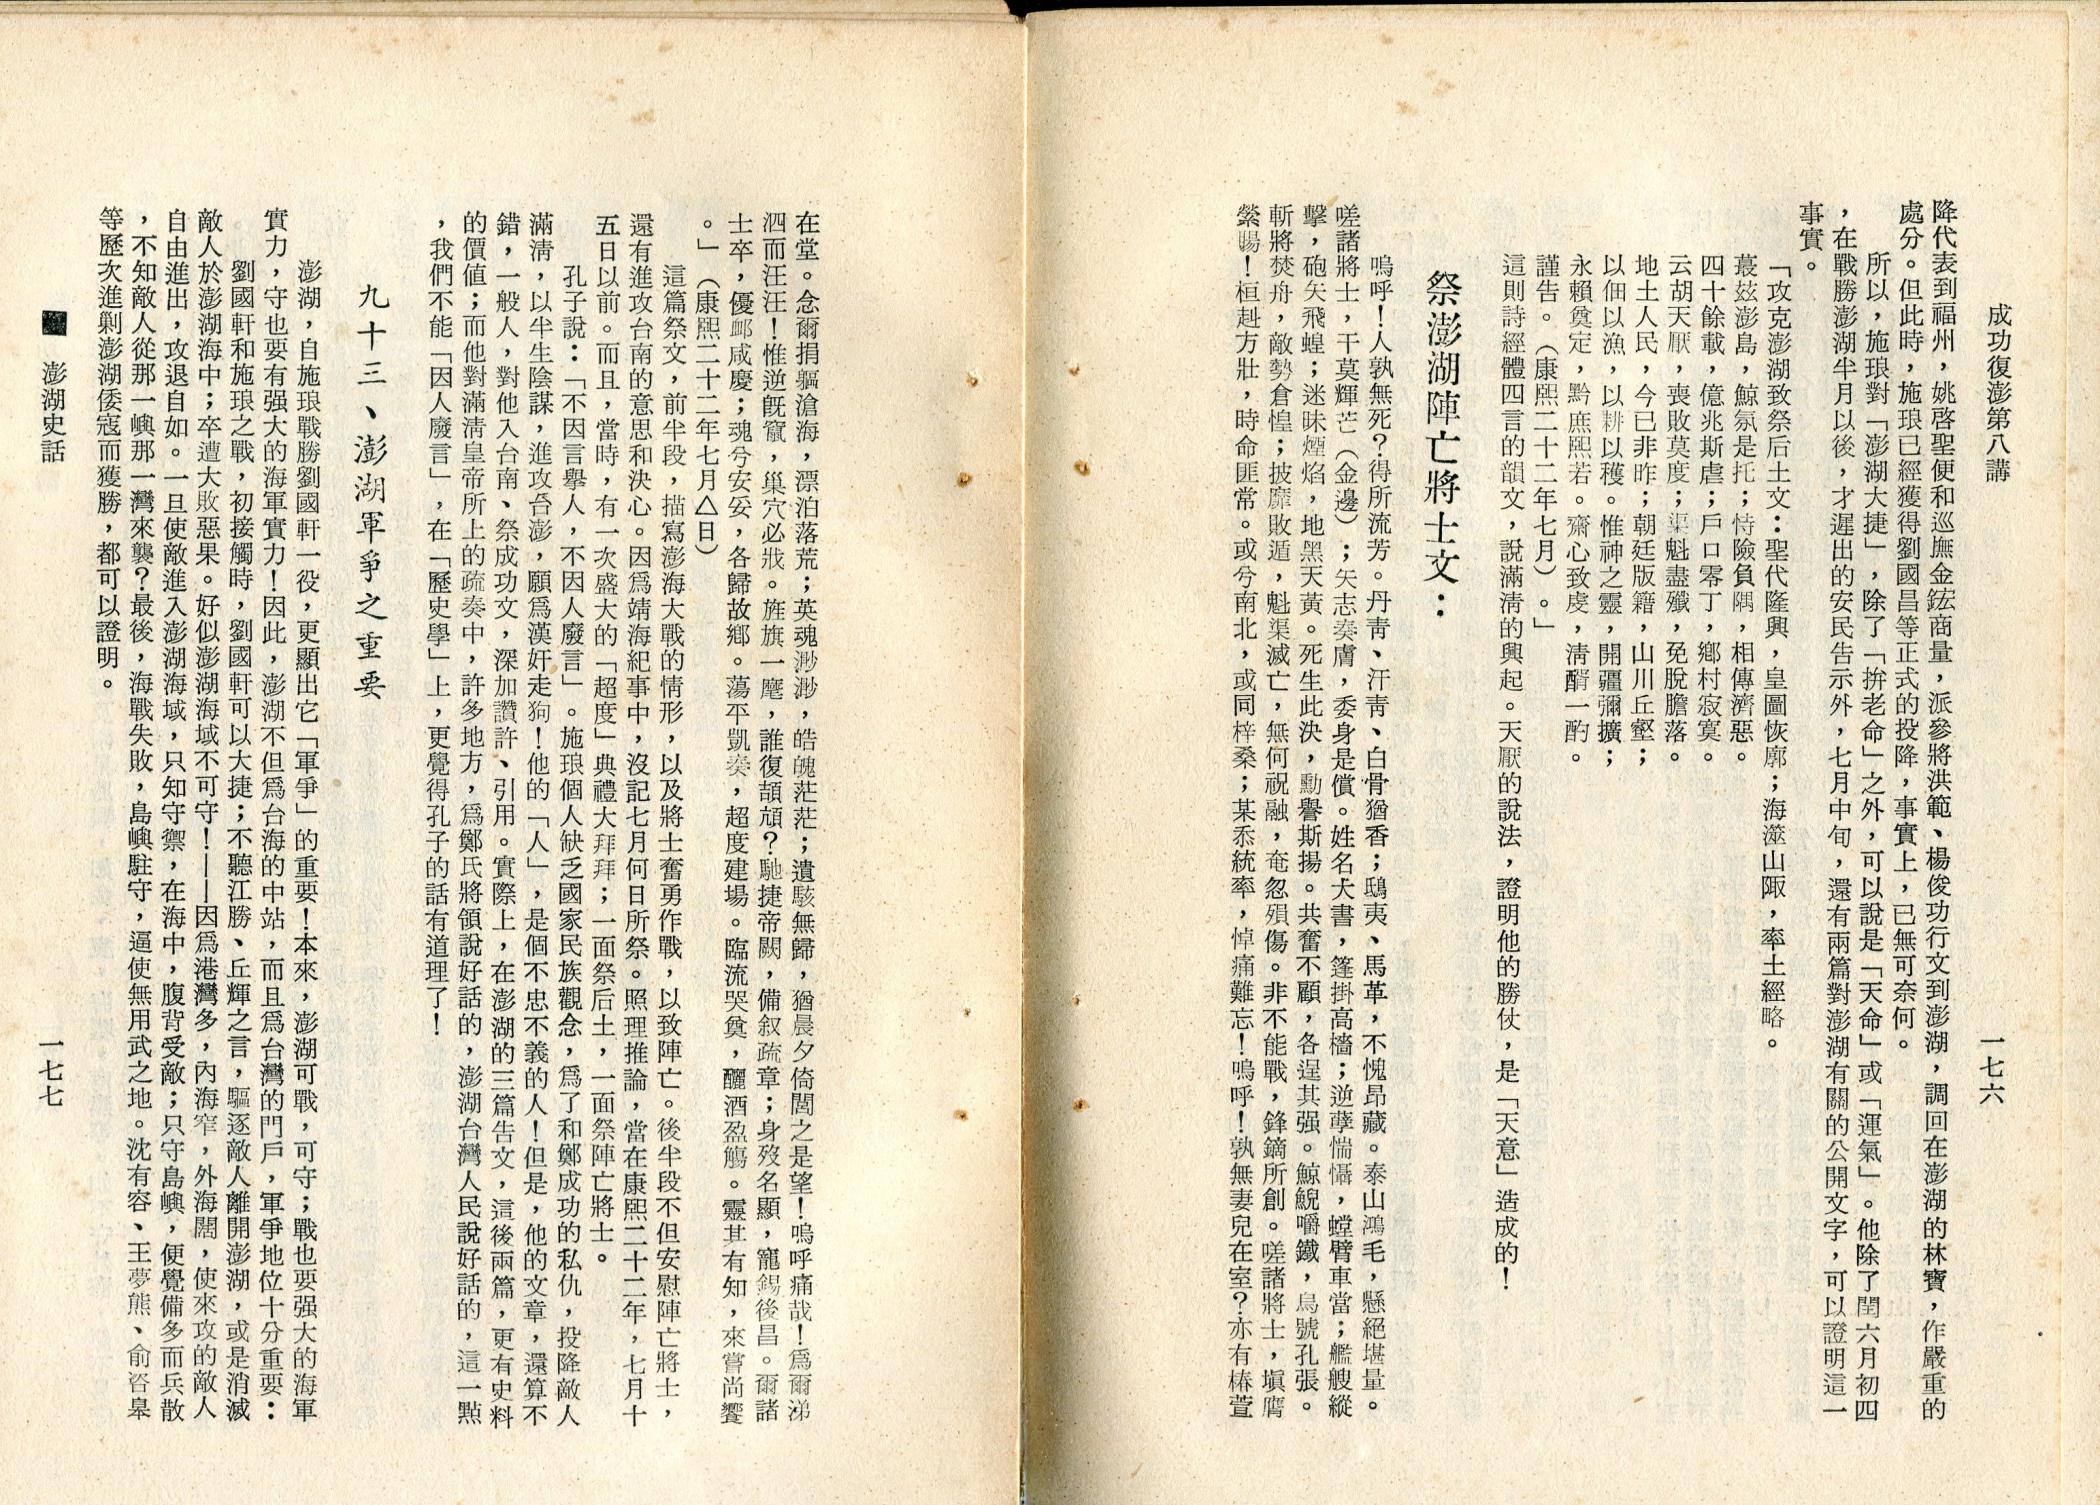 成功復澎第八講
一七六
降代表到福州，姚啓聖便和巡撫金鋐商量，派參將洪範、楊俊功行文到澎湖，調回在澎湖的林寶，作嚴重的
處分。但此時，施琅已經獲得劉國昌等正式的投降，事實上，已無可奈何。
所以，施琅對「澎湖大捷」，除了「拚老命」之外，可以說是「天命」或「運氣」。他除了閏六月初四
，在戰勝澎湖半月以後，才遲出的安民告示外，七月中旬，還有兩篇對澎湖有關的公開文字，可以證明這一
事實。
「攻克澎湖致祭后土文：聖代隆興，皇圖恢廓；海澨山陬，率土經略。
蕞玆澎島，鯨氛是托；恃險負隅，相傳濟惡。
四十餘載，億兆斯虐；戶口零丁，鄉村寂寞。
云胡天厭，喪敗莫度；渠魁盡殲，兔脫膽落。
地土人民，今已非昨；朝廷版籍，山川丘壑；
以佃以漁，以耕以穫。惟神之靈，開疆彌擴；
永賴奠定，黔庶熙若。齋心致虔，清醑一酌。
謹告。（康熙二十二年七月）。」
這則詩經體四言的韻文，說滿淸的興起。天厭的說法，證明他的勝仗，是「天意」造成的！
祭澎湖陣亡將士文：
嗚呼！人孰無死？得所流芳。丹靑、汗靑、白骨猶香；鴟夷、馬革，不愧昂藏。泰山鴻毛，懸絕堪量。
嗟諸將士，干莫輝芒（金邊）；矢志奏膚，委身是償。姓名大書，篷掛高檣；逆孽惴懾，螳臂車當；艦艘縱
擊，砲矢飛蝗；迷昧煙焰，地黑天黃。死生此決，勳譽斯揚。共奮不顧，各逞其强。鯨鯢嚼鐵，烏號孔張。
斬將焚舟，敵勢倉惶；披靡敗遁，魁渠滅亡，無何祝融，奄忽殞傷。非不能戰，鋒鏑所創。嗟諸將士，塡膺
縈暘！桓赳方壯，時命匪常。或兮南北，或同梓桑；某忝統率，悼痛難忘！嗚呼！孰無妻兒在室？亦有椿萱
在堂。念爾捐軀滄海，漂泊落荒；英魂渺渺，皓魄茫茫；遺骸無歸，猶晨夕倚閭之是望！嗚呼痛哉！爲爾涕
泗而汪汪！惟逆旣竄，巢穴必戕。旌旗一麾，誰復頡頏？馳捷帝闕，備叙疏章；身歿名顯，寵錫後昌。爾諸
士卒，優邮咸慶；魂兮安妥，各歸故鄉。蕩平凱奏，超度建場。臨流哭奠，釃酒盈觴。靈其有知，來嘗尚饗
。」（康熙二十二年七月△日）
這篇祭文，前半段，描寫澎海大戰的情形，以及將士奮勇作戰，以致陣亡。後半段不但安慰陣亡將士，
還有進攻台南的意思和決心。因爲靖海紀事中，沒記七月何日所祭。照理推論，當在康熙二十二年，七月十
五日以前。而且，當時，有一次盛大的「超度」典禮大拜拜；一面祭后土，一面祭陣亡將士。
孔子說：「不因言舉人，不因人廢言」。施琅個人缺乏國家民族觀念，爲了和鄭成功的私仇，投降敵人
滿淸，以半生陰謀，進攻台澎，願爲漢奸走狗！他的「人」，是個不忠不義的人！但是，他的文章，還算不
錯，一般人，對他入台南、祭成功文，深加讚許、引用。實際上，在澎湖的三篇告文，這後兩篇，更有史料
的價値；而他對滿淸皇帝所上的疏奏中，許多地方，爲鄭氏將領說好話的，澎湖台灣人民說好話的，這一點
，我們不能「因人廢言」，在「歷史學」上，更覺得孔子的話有道理了！
九十三、澎湖軍爭之重要
澎湖，自施琅戰勝劉國軒一役，更顯出它「軍爭」的重要！本來，澎湖可戰，可守；戰也要强大的海軍
實力，守也要有强大的海軍實力！因此，澎湖不但爲台海的中站，而且爲台灣的門戶，軍爭地位十分重要：
劉國軒和施琅之戰，初接觸時，劉國軒可以大捷；不聽江勝、丘輝之言，驅逐敵人離開澎湖，或是消滅
敵人於澎湖海中；卒遭大敗惡果。好似澎湖海域不可守！——因爲港灣多，內海窄，外海闊，使來攻的敵人
自由進出，攻退自如。一旦使敵進入澎湖海域，只知守禦，在海中，腹背受敵；只守島嶼，便覺備多而兵散
，不知敵人從那一嶼那一灣來襲？最後，海戰失敗，島嶼駐守，逼使無用武之地。沈有容、王夢熊、俞咨皋
等歷次進剿澎湖倭寇而獲勝，都可以證明。
■ 澎湖史話
一七七